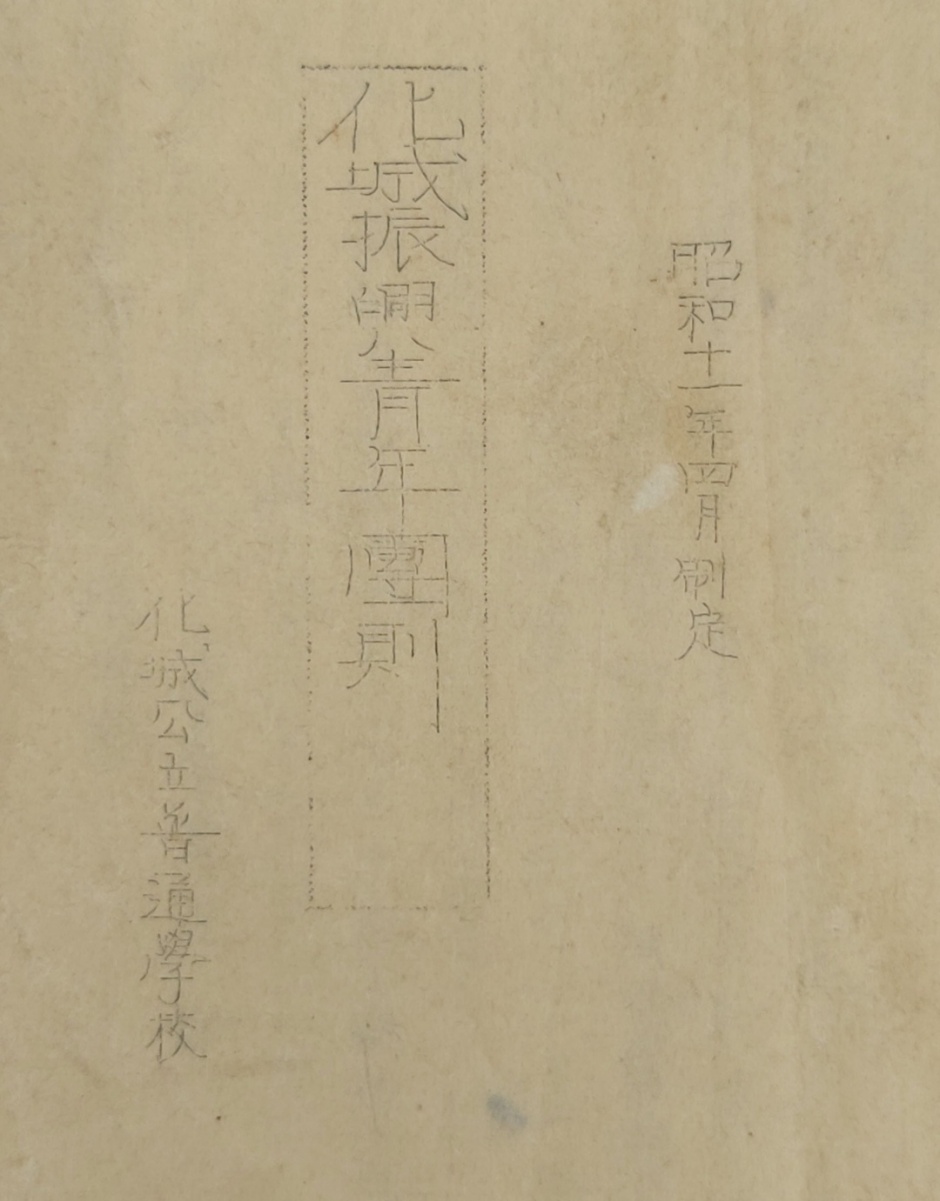 昭和十一年四月制定
化城振興青年團則
化城公立普通學校